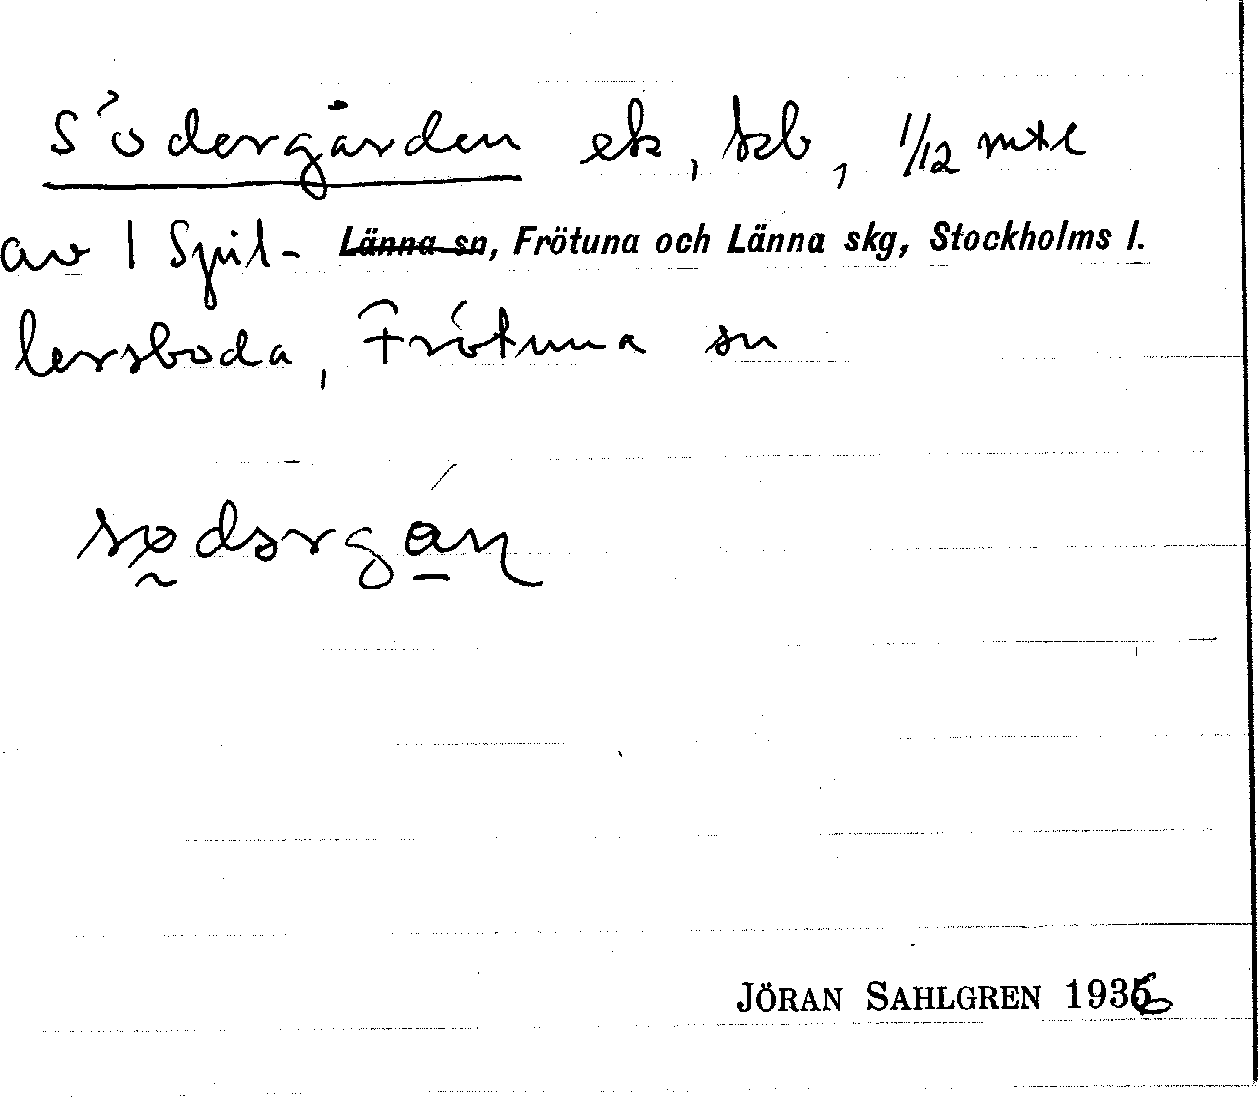 Södergården ek, skb, 1/12 mtl
av 1 Spil- Länna sn, Frötuna och Länna skg, Stockholms l.
lersboda, Frötuna sn
södərgán
JÖRAN SAHLGREN 1936